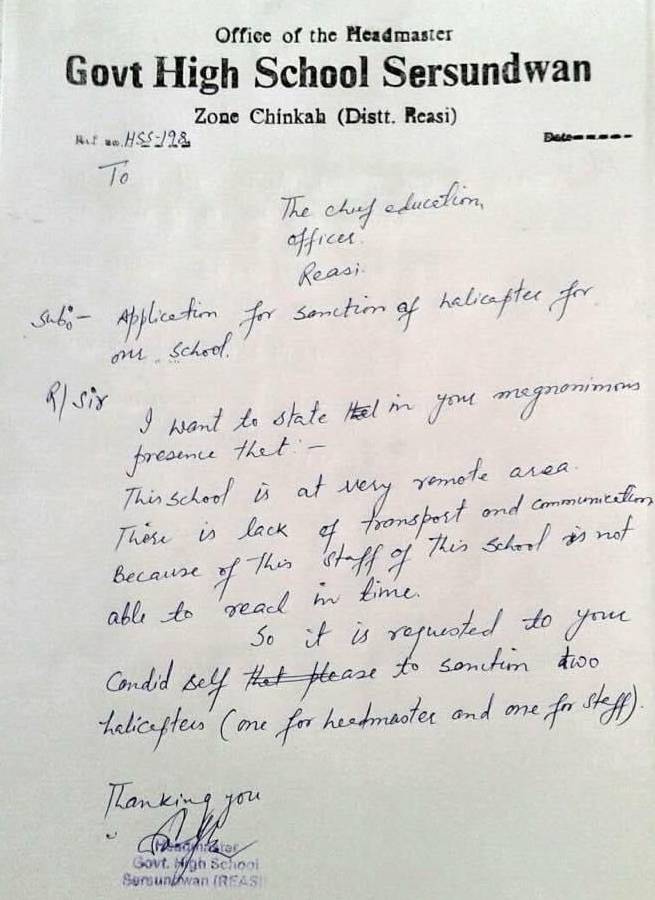 Office of the Headmaster
Govt High School Sersundwan
Zone Chinkah (Distt. Reasi)
Ref no. HSS-198 Date-----
To
The chief education
officer.
Reasi.
Sub:- Application for sanction of halicapter for
our school.
R/Sir
I want to state in your megnonimous
presence thet:-
This school is at very remote area.
There is lack of transport and communication
Because of this staff of this school is not
able to reach in time.
So it is requested to your
Candid self that please to sanction two
halicapters (one for headmaster and one for staff).
Thanking you
Headmaster
Govt. High School
Sersundwan (REASI